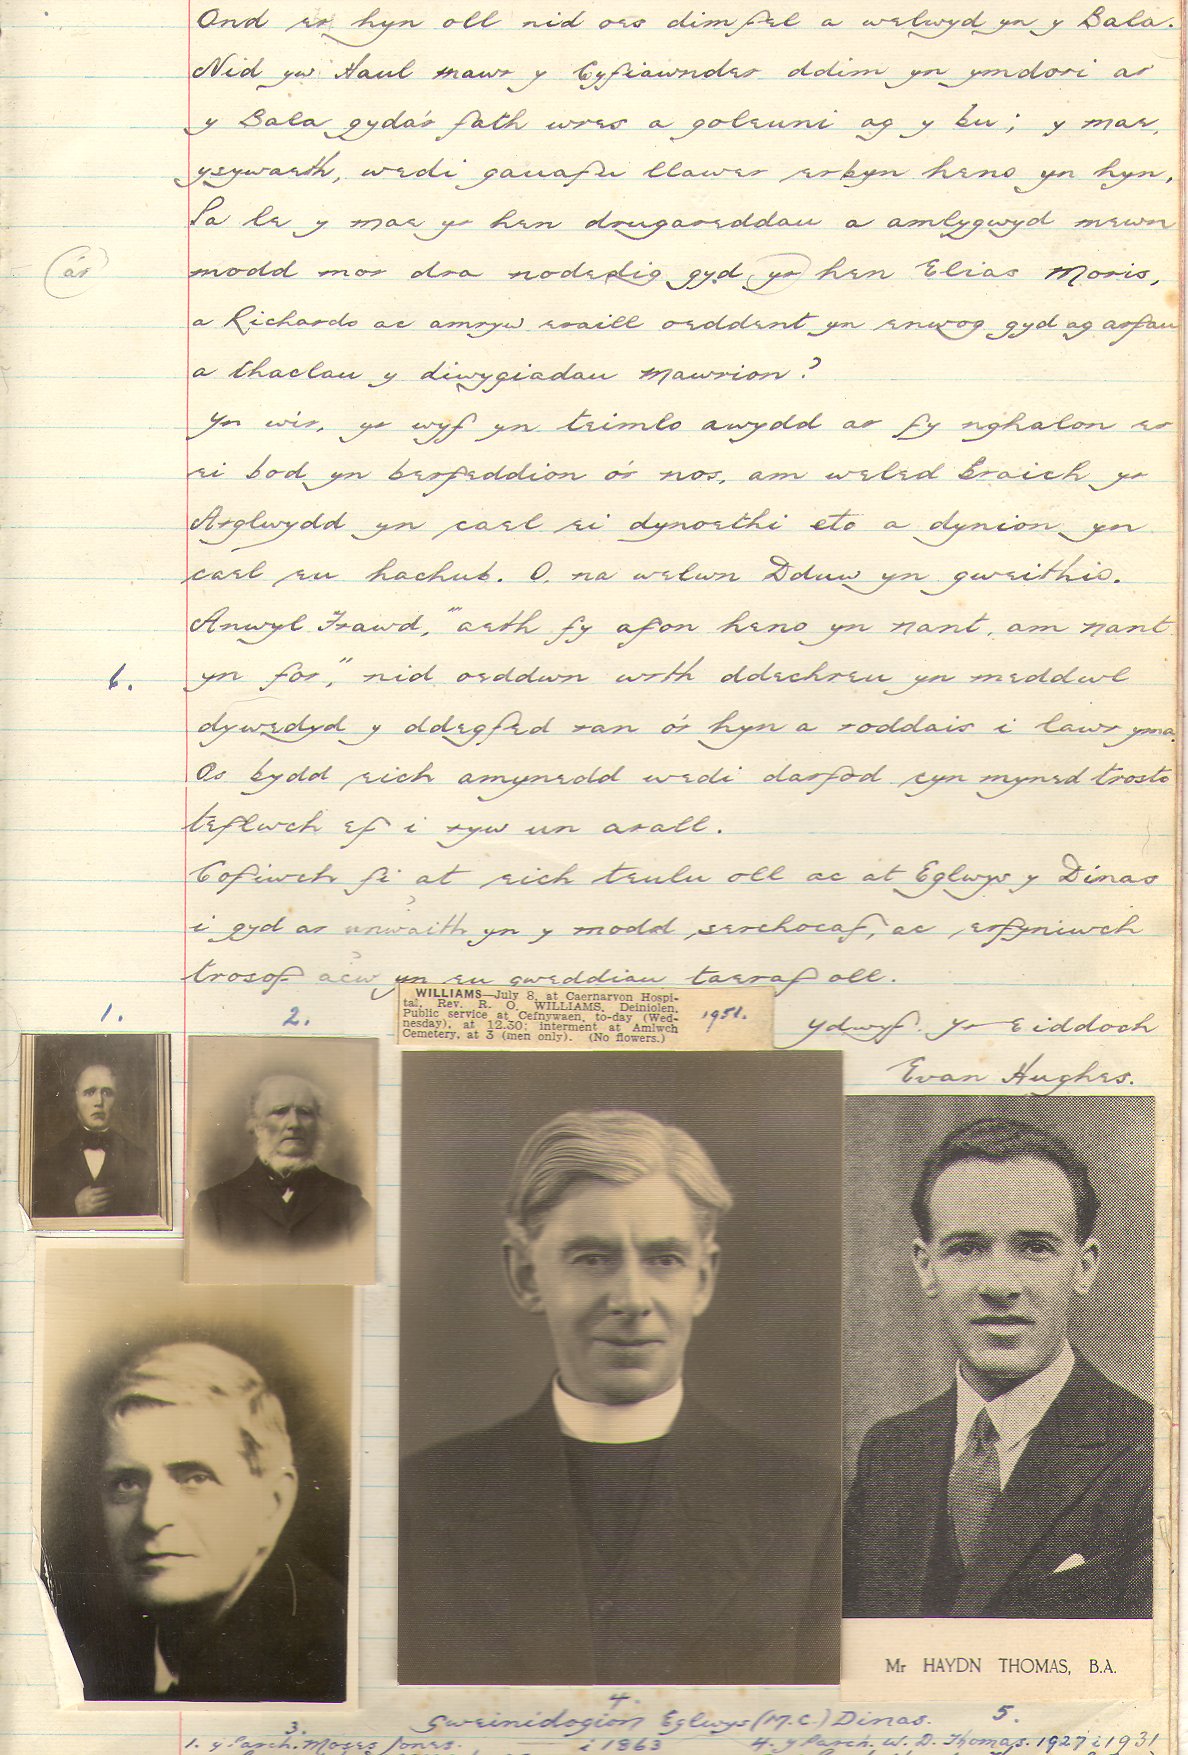 Ond er hyn oll nid oes dim fel a welwyd yn y Bala.
Nid yw Haul mawr y Cyfiawnder ddim yn ymdori ar
y Bala gyda'r fath wres a goleuni ag y bu; y mae,
ysywaeth, wedi gauafu llawer erbyn heno yn hyn,
Pa le y mae yr hen drugareddau a amlygwyd mewn
(a'r) modd mor dra nodedig gyd yr hen Elias Moris,
a Richards ac amryw eraill oeddent yn enwog gyd ag arfau
a thaclau y diwygiadau mawrion?
Yn wir, yr wyf yn teimlo awydd ar fy nghalon er
ei bod yn berfeddion o'r nos, am weled braich yr
Arglwydd yn cael ei dynoethi eto a dynion yn
cael eu hachub. O, na welwn Dduw yn gweithio.
Anwyl Frawd, "aeth fy afon heno yn nant, am nant
6. yn for," nid oeddwn wrth ddechreu yn meddwl
dywedyd y ddegfed ran o'r hyn a roddais i lawr yma.
Os bydd eich amynedd wedi darfod cyn myned trosto
teflwch ef i ryw un arall.
Cofiwch fi at eich teulu oll ac at Eglwys y Dinas
i gyd ar unwaith yn y modd serchocaf, ac erfyniwch
trosof acw yn eu gweddiau taeraf oll.
Ydwyf. Yr eiddoch
Evan Hughes.
WILLIAMS—July 8, at Caernarvon Hospi-
tal, Rev. R. O. WILLIAMS, Deiniolen.
Public service at Cefnywaen, to-day (Wed-
nesday), at 12.30; interment at Amlwch
Cemetery, at 3 (men only). (No flowers.)
1951.
1.
2.
Mr HAYDN THOMAS, B.A.
3.
4.
5.
Gweinidogion Eglwys (M.C.) Dinas.
1. y Parch. Moses Jones. i 1863
4. y Parch. W. D. Thomas. 1927 i 1931